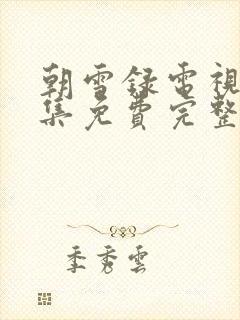 朝雪録電視
集免費完整
季秀雲